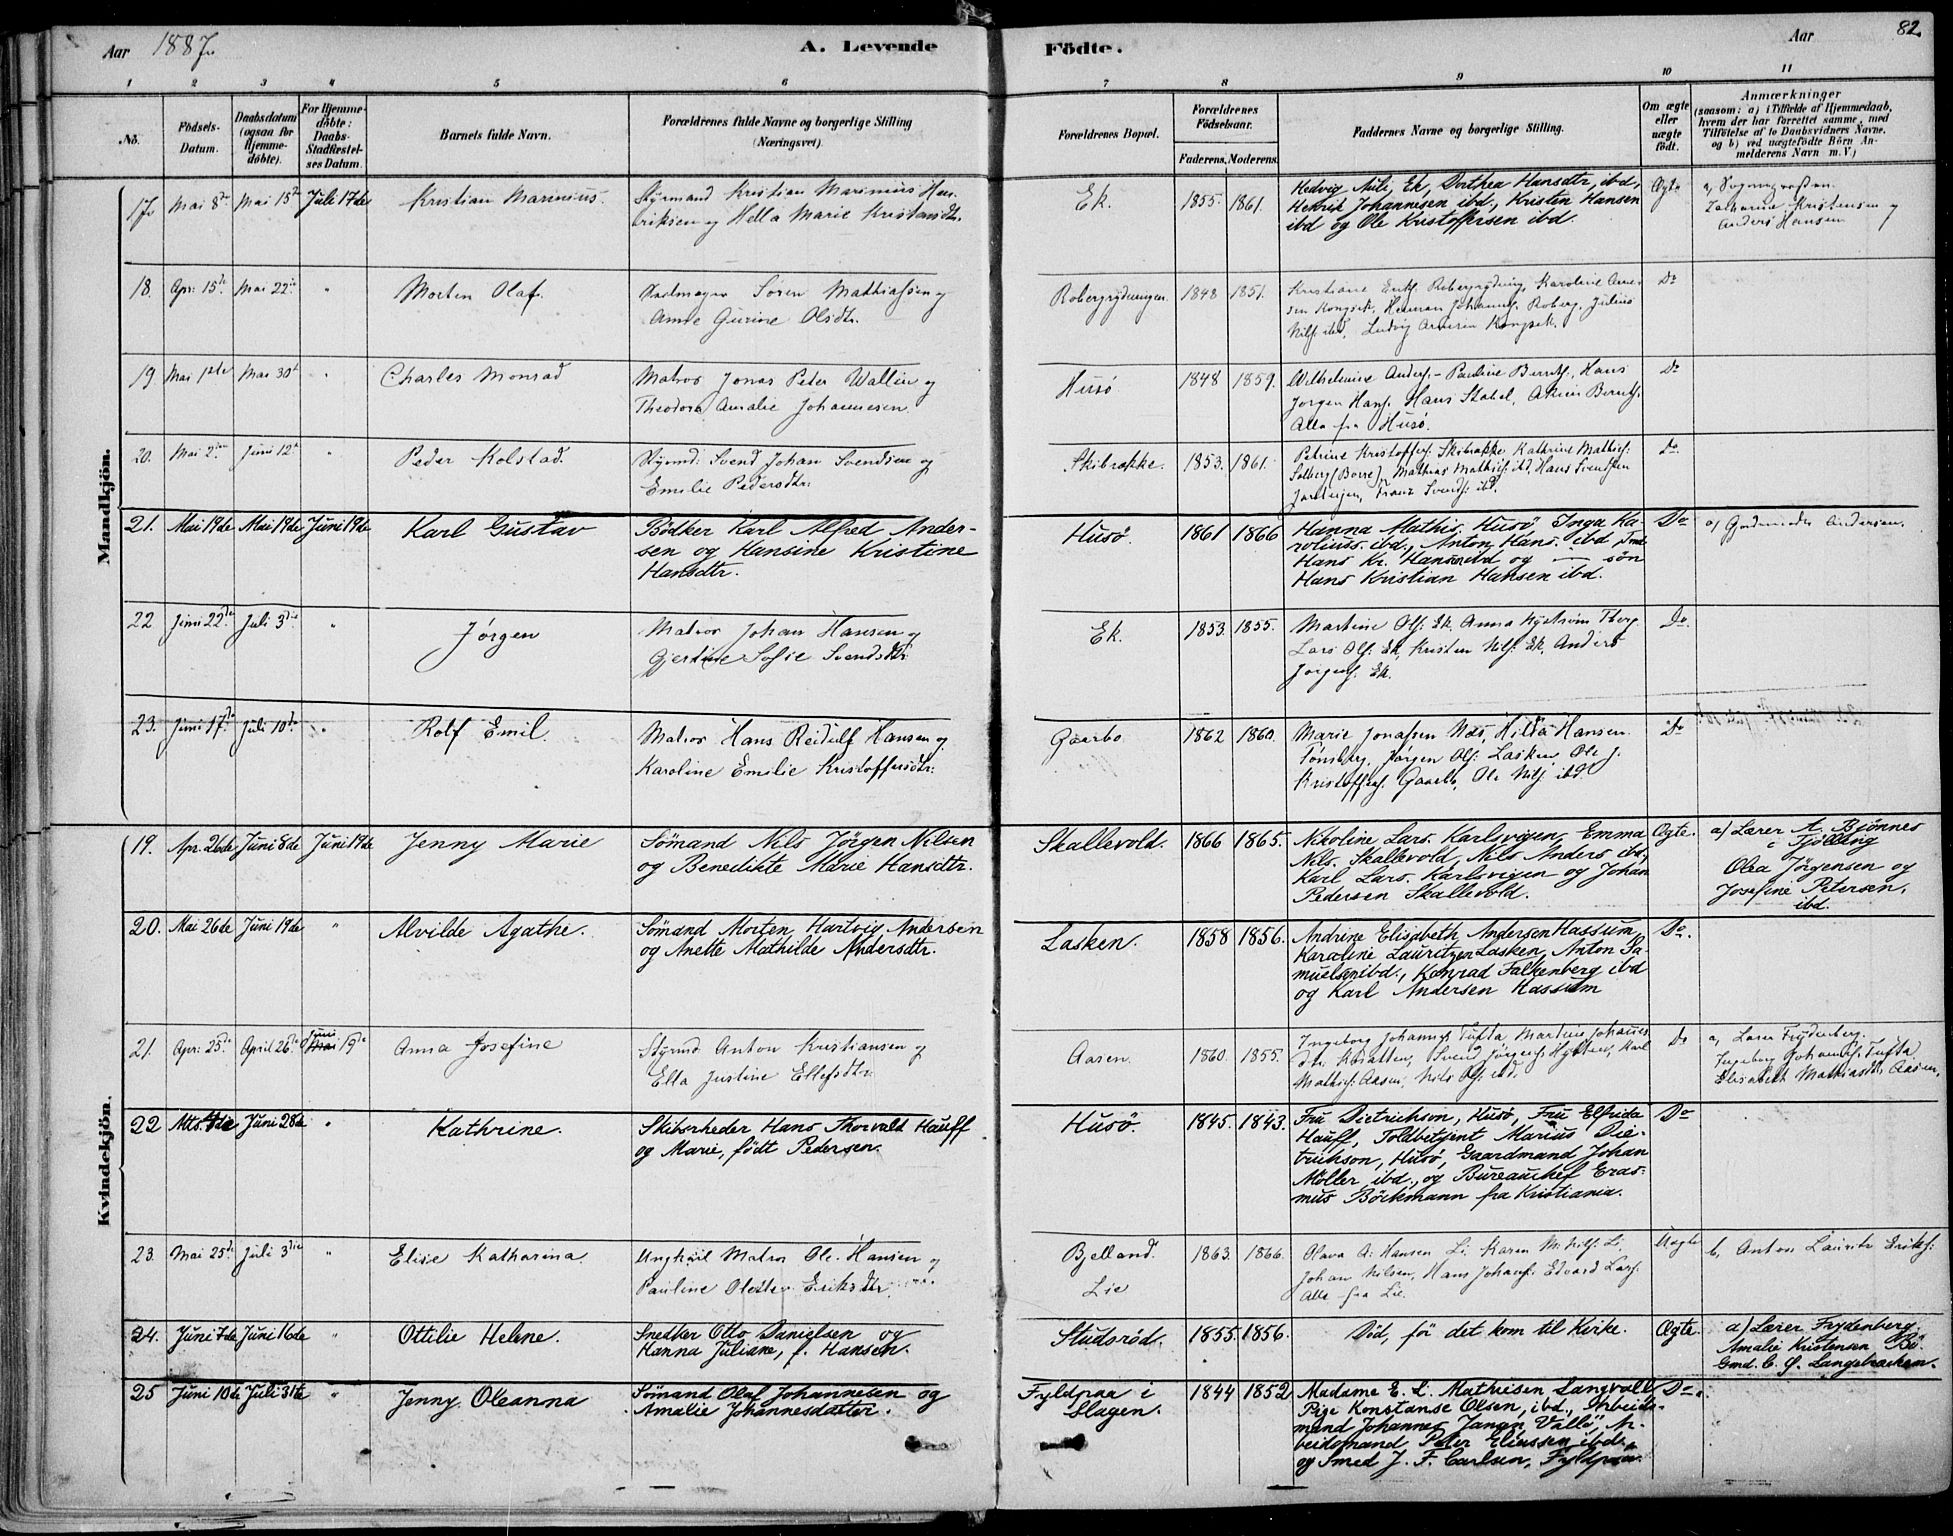 Aar 1887.
A. Levende
Födte.
Aar
82.
1 2 3 4 5 6 7 8 9 10 11
No.
Födsels-Datum.
Daabsdatum (ogsaa for Hjemme-döbte).
For Hjemme-döbte: Daabs-Stadfæstel-ses Datum.
Barnets fulde Navn.
Forældrenes fulde Navne og borgerlige Stilling (Næringsvei).
Forældrenes Bopæl.
Forældrenes Födselsaar.
Faderens. Moderens.
Faddernes Navne og borgerlige Stilling.
Om ægte eller uægte födt.
Anmærkninger
(saasom: a) i Tilfælde af Hjemmedaab, hvem der har forrettet samme, med Tilföielse af to Daabsvidners Navne, og b) ved uægtefödte Börn An-melderens Navn m. V.)
Mandkjön.
17. Mai 8de Mai 15de Juli 17de Kristian Marinius.
Styrmand Kristian Marinius Hen-
riksen og Hella Marie Kristansdtr.
Ek. 1855. 1861.
Hedvig Nils, Ek, Dorthea Hansdtr, ibd,
Henrik Johannesen ibd., Kristen Hansen
ibd og Ole Kristoffersen ibd.
Ægte
a,
Kristensen og
Anders Hansen
18. Apr. 15de Mai 22de " Morten Olaf.
Søren Mathiassen og
Anne Gurine Olsdtr.
Robergrydningen. 1848 1851.
Do
19 Mai 1ste Mai 30te " Charles Monrad
Matros Jonas Peter Wallin og
Theodora Amalie Johannesen.
Husö 1848 1859.
Wilhelmine Anders. - Pauline Bernts., Hans
Jørgen Hans. Hans Stabel,
Alle fra Husö.
Do
20. Juni 12te " Peder Kolstad.
Styrmd. Svend Johan Svendsen og
Emilie Pedersdtr.
Skibrække. 1853. 1861.
Petrine Kristoffers. Skibrække, Kathrine Mathis.
Solberg (Borre), Mathias Mathis. ibd, Hans Svendsen
Do
21. Mai 19de Mai 19de Juni 19de Karl Gustav
Bödker Karl Alfred Ander-
sen og Hansine Kristine
Hansdtr.
Husö. 1861 1866
Hanna Mathis. Husö, Inga Ka-
rolius. ibd., Anton Hans. ibd
Hans Kr. Hansen ibd og — sön
Hans Kristian Hansen ibd.
Do
a) Gjødemoder Andersen.
22 Juni 22de Juli 3die " Jørgen
Matros Johan Hansen og
Gjertine Sofie Svendsdtr.
Ek. 1853. 1855.
Martine Ols. Ek. Anna Nystrøm Tberg
Lars Ols. Ek, Kristen Nils. Ek, Anders
Jørgens. Ek.
Do.
23. Juni 17de Juli 10de " Rolf Emil.
Matros Hans Reidulf Hansen og
Karoline Emilie Kristoffersdtr.
Gaarbo 1862 1860.
Marie Jonassen Næs, Hilda Hansen
Tønsberg, Jørgen Ols. Lasken Ole J.
Kristoffers. Gaarbo, Ole Nils. ibd.
Do
Kvindekjön.
19. Apr. 26de Juni 8de Juni 19de Jenny Marie
Sömand Nils Jörgen Nilsen
og Benedikte Marie Hansdtr.
Skallevold. 1866 1865.
Nikoline Lars. Karlsvigen, Emma
Nils. Skallevold, Nils Anders. ibd,
Karl Lars. Karlsvigen og Johan
Pedersen Skallevold.
Ægte.
a) Lærer A. Bjönnes
i Tjölling
Olea Jörgensen og
Josefine Petersen,
ibd.
20. Mai 26de Juni 19de " Alvilde Agathe.
Sömand Morten Hartvig Andersen
og Anette Mathilde Andersdtr.
Lasken. 1858 1856.
Andrine Elisabeth Andersen Hassum,
Karoline Lauritzen Lasken, Anton Sa-
muelsen ibd., Konrad Falkenberg ibd
og Karl Andersen Hassum
Do.
21. Apr. 25de April 26de Juni Mai 19de Anna Josefine
Styrmd Anton Kristiansen og
Ella Justine Ellefsdtr.
Aasen. 1860. 1855.
Ingeborg Johanns. Tufta, Martine Johannes
dtr. Svend Jørgens. Karl
Mathis. Aasen, Nils Ols. ibd.
Do
a, Lærer Frydenberg.
Ingeborg Johanns. Tufta
Elisabeth Mathiasdtr. Aasen.
22 Mts. 4de Juni 28de " Kathrine.
Skibsrheder Hans Thorvald Hauff
og Marie, født Pedersen.
Husö. 1845. 1843.
Fru Dietrichson, Husö, Fru Elfrida
Hauff, Toldbetjent Marius Die-
trichson, Husö, Gaardmand Johan
Möller ibd., og Bureauchef Eras-
mus Böckmann fra Kristiania.
Do
23. Mai 25de Juli 3die " Elise Katharina.
Ungkarl Matros Ole Hansen og
Pauline Eriksdtr.
Bjelland.
Lie
1863. 1866.
Olava A. Hansen Li, Karen M. Nils. Li,
Johan Nilsen, Hans Johans. Edvard Lars.
Alle fra Lie.
Uægte
b, Anton Lauritz Eriks.
24. Juni 7de Juni 16de " Ottilie Helene.
Snedker Otto Danielsen og
Hanna Juliane, f. Hansen.
Studsröd. 1855. 1856.
Död, för det kom til Kirke.
Ægte.
a) Lærer Frydenberg.
Amalie Kristensen Bö.
Gmd. C. J. Langebækken.
25 Juni 10de Juli 31te " Jenny Oleanna
Sömand Olaf Johannesen og
Amalie Johannesdatter.
Fyldpaa i
Slagen.
1844 1852
Madame E. L. Mathiesen Langvall,
Pige Konstanse Olsen, ibd., Arbeids-
mand Johannes Jansen Vallö, Ar-
beidsmand Peter Eliassen ibd.,
og Smed J. F. Carlsen, Fyldpaa.
Do.